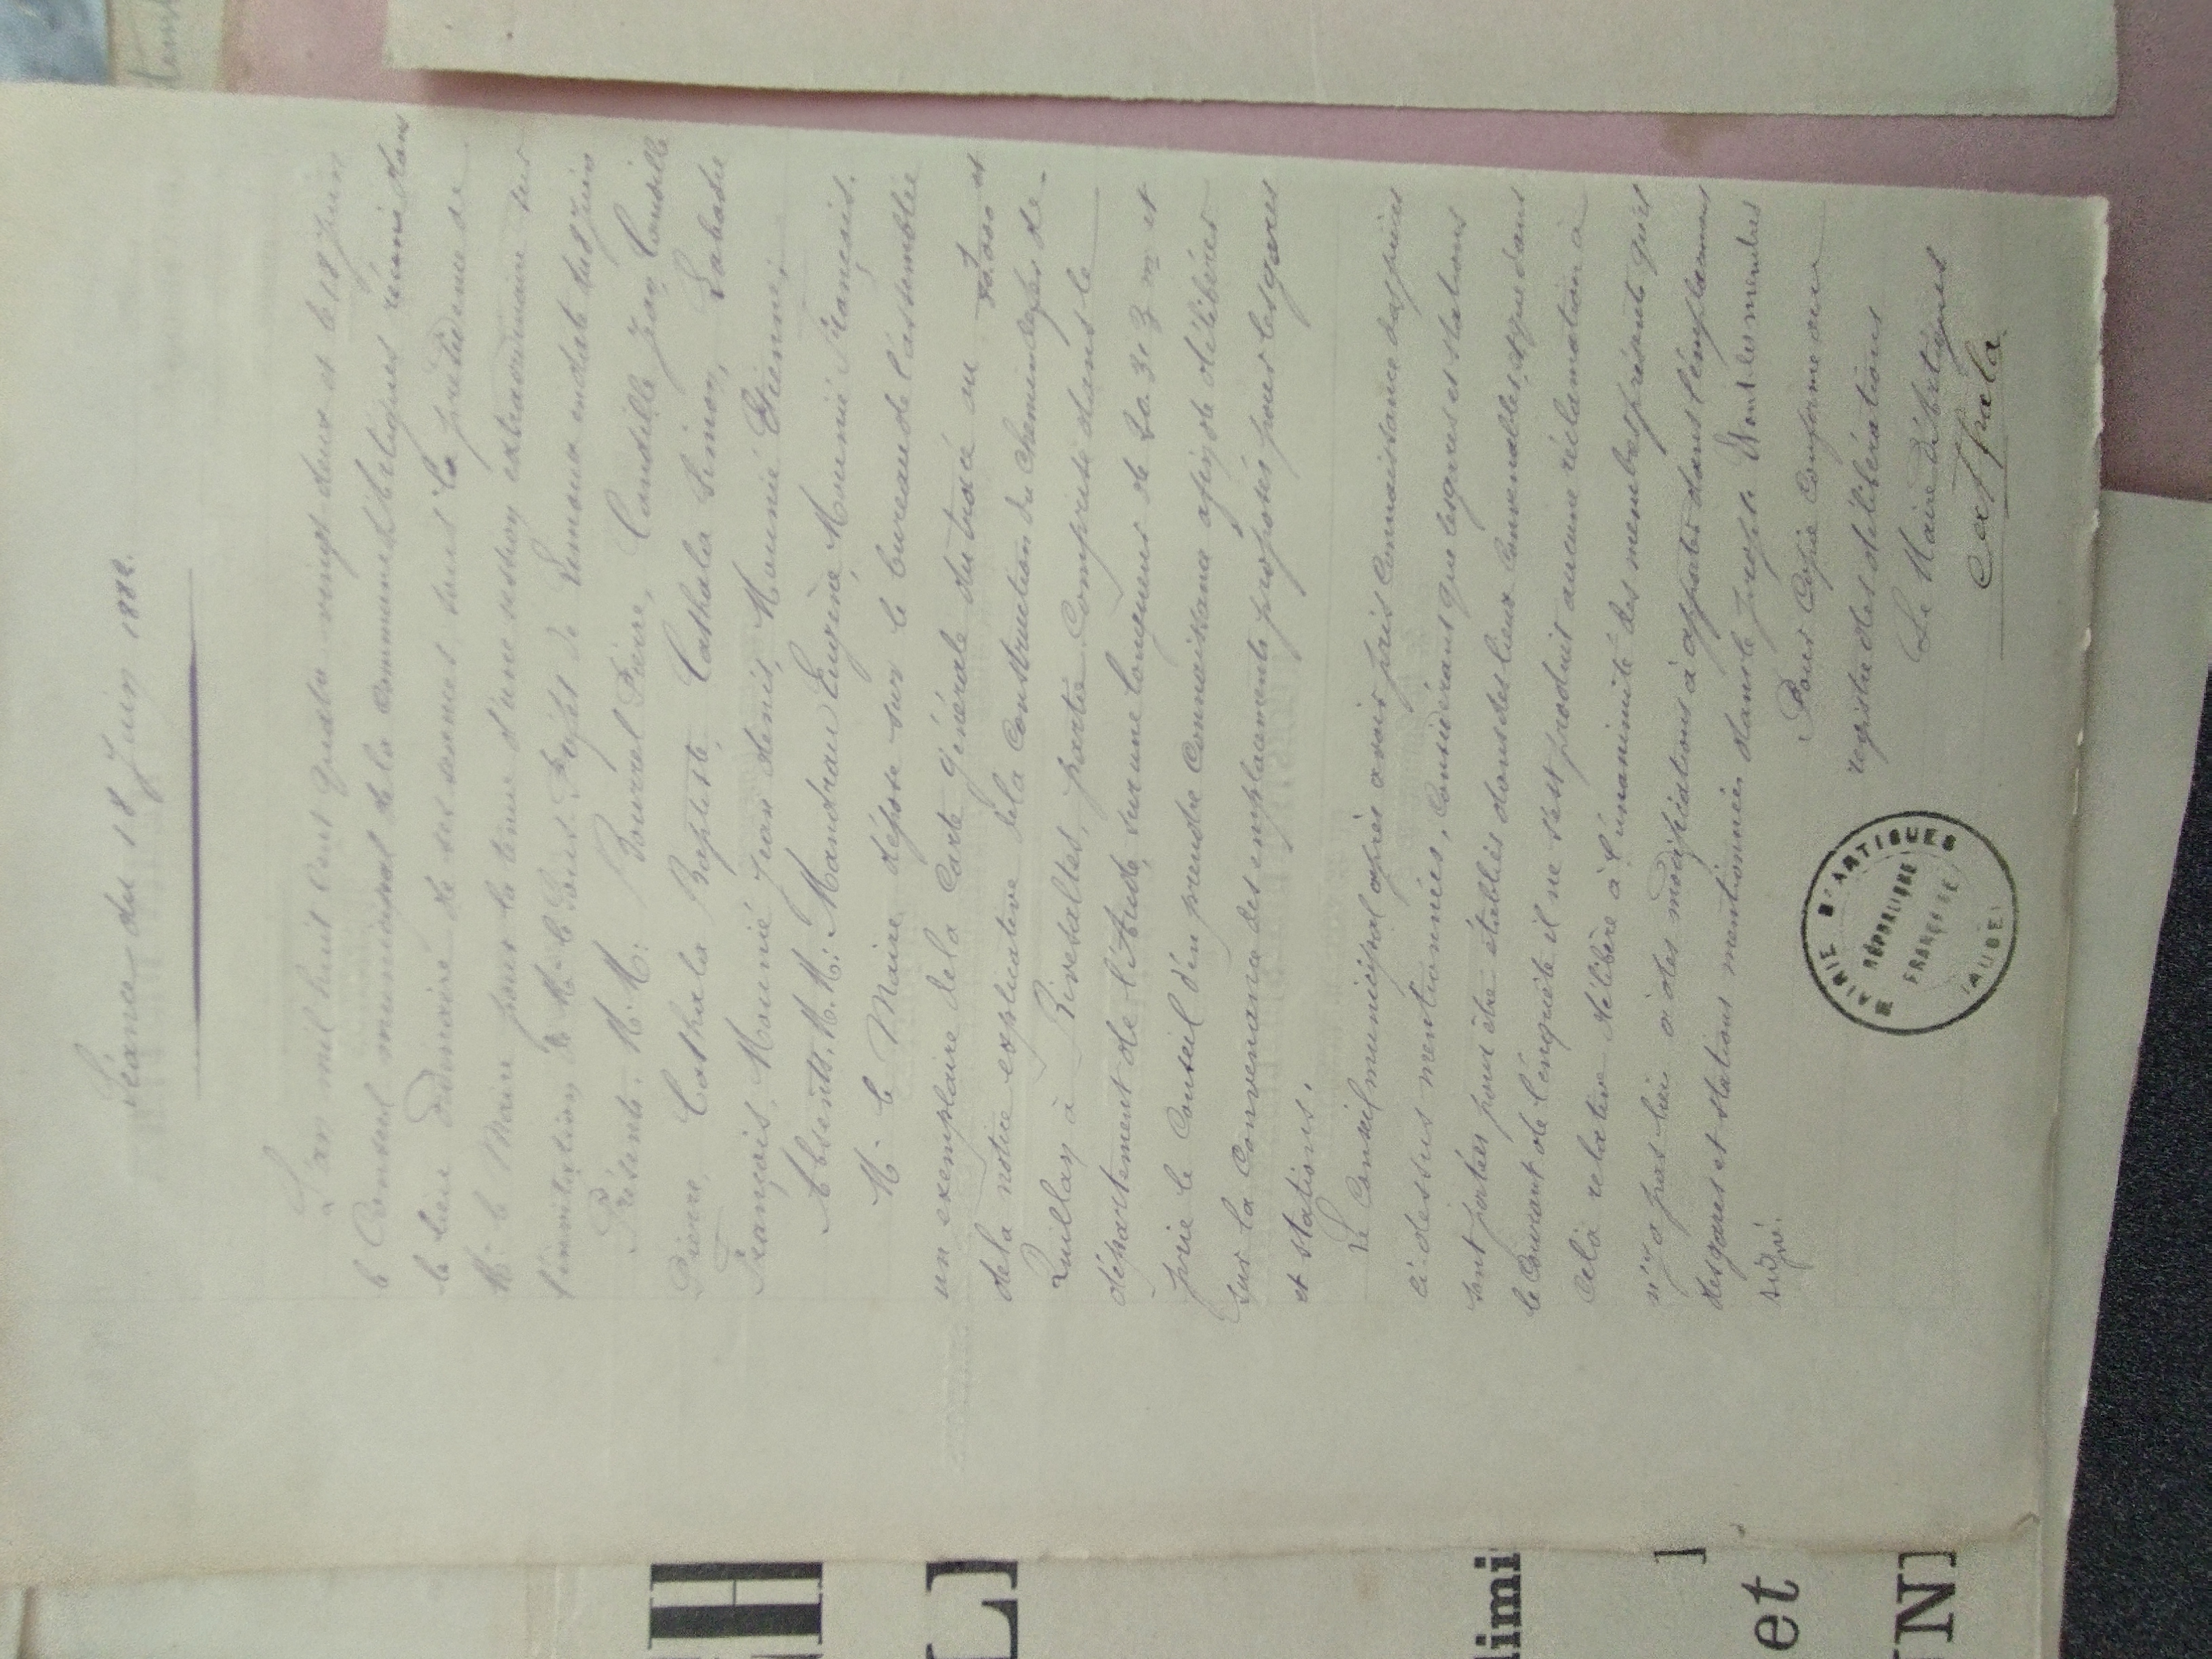 Séance du 18 Juin 1882.
L'an mil huit cent quatre vingt deux et le 18 Juin
le Conseil municipal de la commune d'Artigues réuni dans
le lieu ordinaire de ses séances, sous la présidence de
Mr le Maire pour la tenue d'une session extraordinaire sur
l'invitation de Mr le Sous-Préfet de Limoux en date du 8 Juin
Présents. M.M: Bourrel Pierre, Caudille Jean, Caudille
Pierre, Cathala Baptiste, Cathala Simon, Labadie
François, Mounié Jean denis, Mounié Etienne;
Absents. M.M: Mandrau Eugène, Mounié François.
Mr le Maire dépose sur le bureau de l'assemblée
un exemplaire de la Carte générale du tracé au et
de la notice explicative de la Construction du Chemin de fer de
Quillan à Rivesaltes, partie Comprise dans le
département de l'Aude, sur une longueur de m et
prie le Conseil d'en prendre Connaissance afin de délibérer
sur la Convenance des emplacements proposés pour les gares
et stations.
Le Conseil municipal après avoir pris Connaissance des pièces
ci-dessus mentionnées, Considérant que les gares et stations
sont portées pour être établies dans des lieux Convenables, et que dans
le Courant de l'enquête il ne s'est produit aucune réclamation à
celà relative délibère à l'unanimité des membres présents qu'il
n'y a pas lieu à des modifications à apporter dans l'emplacement
des gares et stations mentionnées dans le projet. Et ont les membres
signé.
Pour Copie Conforme au
registre des délibérations
Le Maire d'Artigues
Cathala
MAIRIE D'ARTIGUES
RÉPUBLIQUE
FRANÇAISE
(AUDE)
limi
et